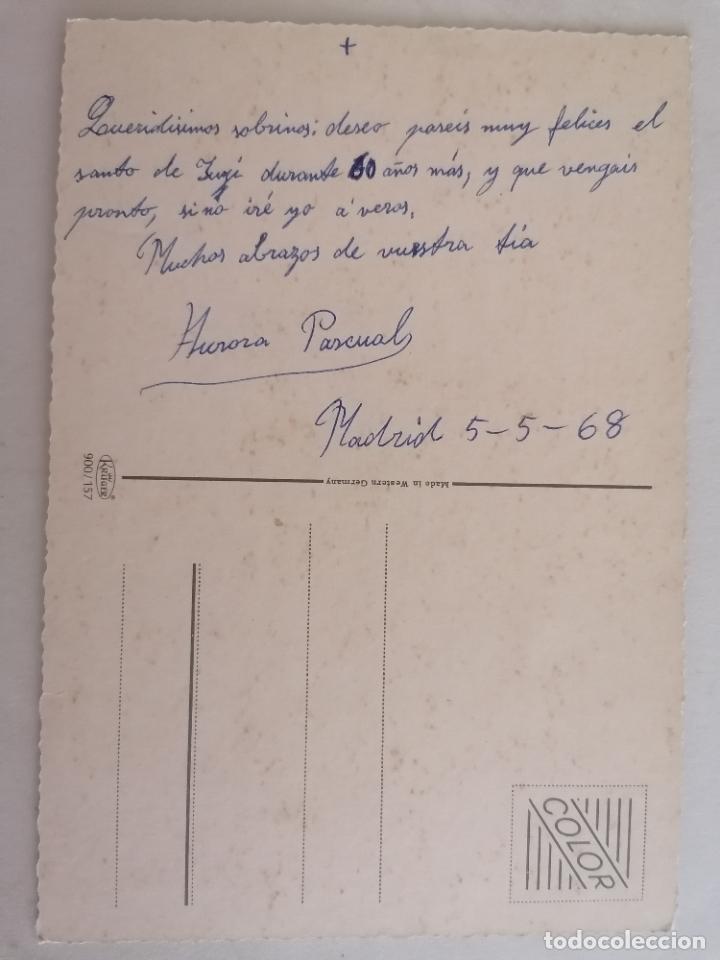 +
Queridisimos sobrinos: deseo paseis muy felices el
santo de durante 60 años más, y que vengais
pronto, sino iré yo á veros.
Muchos abrazos de vuestra tía
Aurora Pascual
Madrid 5-5-68
Made in Western Germany
KRÜGER
900/157
COLOR
todocoleccion.net